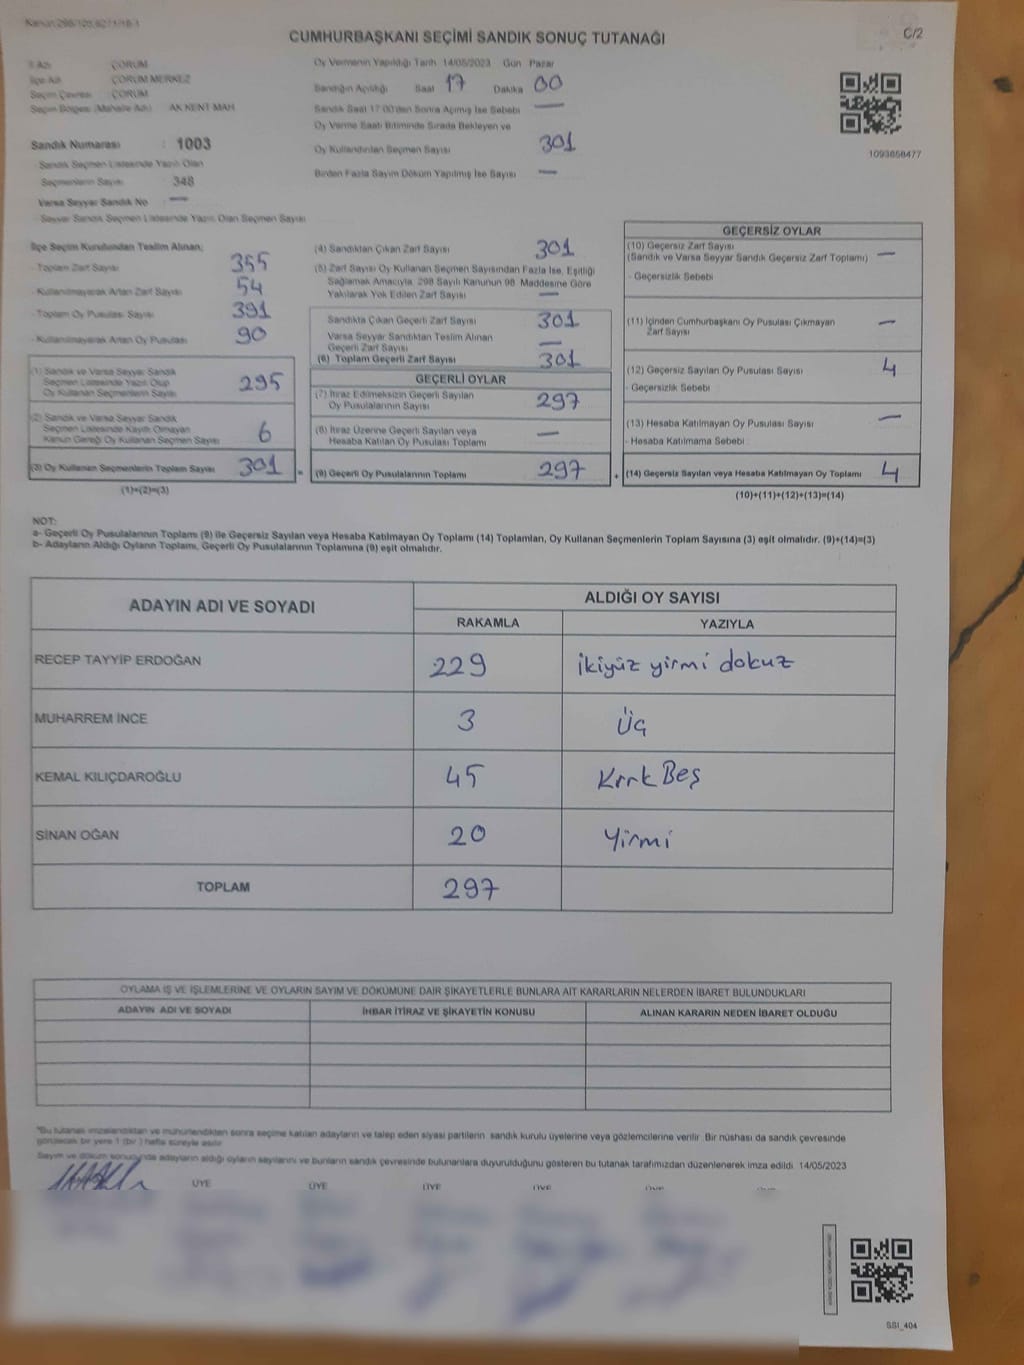 Kanun:298/105,6271/18-1
C/2
CUMHURBAŞKANI SEÇİMİ SANDIK SONUÇ TUTANAĞI
İl Adı : ÇORUM
İlçe Adı : ÇORUM MERKEZ
Seçim Çevresi : ÇORUM
Seçim Bölgesi (Mahalle Adı) : AK KENT MAH
Sandık Numarası : 1003
Sandık Seçmen Listesinde Yazılı Olan
Seçmenlerin Sayısı : 348
Varsa Seyyar Sandık No —
Seyyar Sandık Seçmen Listesinde Yazılı Olan Seçmen Sayısı
Oy Vermenin Yapıldığı Tarih 14/05/2023 Gün Pazar
Sandığın Açıldığı Saat 17 Dakika 00
Sandık Saat 17:00'den Sonra Açımış İse Sebebi —
Oy Verme Saati Bitiminde Sırada Bekleyen ve
Oy Kullandırılan Seçmen Sayısı 301
Birden Fazla Sayım Döküm Yapılmış İse Sayısı —
1093658477
İlçe Seçim Kurulundan Teslim Alınan;
- Toplam Zarf Sayısı 355
- Kullanılmayarak Artan Zarf Sayısı 54
- Toplam Oy Pusulası Sayısı 391
- Kullanılmayarak Artan Oy Pusulası 90
(1) Sandık ve Varsa Seyyar Sandık
Seçmen Listesinde Yazılı Olup
Oy Kullanan Seçmenlerin Sayısı 295
(2) Sandık ve Varsa Seyyar Sandık
Seçmen Listesinde Kayıtlı Olmayan
Kanun Gereği Oy Kullanan Seçmen Sayısı 6
(3) Oy Kullanan Seçmenlerin Toplam Sayısı 301
(1)+(2)=(3)
(4) Sandıktan Çıkan Zarf Sayısı 301
(5) Zarf Sayısı Oy Kullanan Seçmen Sayısından Fazla İse, Eşitliği
Sağlamak Amacıyla, 298 Sayılı Kanunun 98. Maddesine Göre
Yakılarak Yok Edilen Zarf Sayısı —
Sandıkta Çıkan Geçerli Zarf Sayısı 301
Varsa Seyyar Sandıktan Teslim Alınan
Geçerli Zarf Sayısı —
(6) Toplam Geçerli Zarf Sayısı 301
GEÇERLİ OYLAR
(7) İtiraz Edilmeksizin Geçerli Sayılan
Oy Pusulalarının Sayısı 297
(8) İtiraz Üzerine Geçerli Sayılan veya
Hesaba Katılan Oy Pusulası Toplamı —
= (9) Geçerli Oy Pusulalarının Toplamı 297
GEÇERSİZ OYLAR
(10) Geçersiz Zarf Sayısı
(Sandık ve Varsa Seyyar Sandık Geçersiz Zarf Toplamı) —
- Geçersizlik Sebebi
(11) İçinden Cumhurbaşkanı Oy Pusulası Çıkmayan
Zarf Sayısı —
(12) Geçersiz Sayılan Oy Pusulası Sayısı 4
- Geçersizlik Sebebi
(13) Hesaba Katılmayan Oy Pusulası Sayısı —
- Hesaba Katılmama Sebebi
+ (14) Geçersiz Sayılan veya Hesaba Katılmayan Oy Toplamı 4
(10)+(11)+(12)+(13)=(14)
NOT:
a- Geçerli Oy Pusulalarının Toplamı (9) ile Geçersiz Sayılan veya Hesaba Katılmayan Oy Toplamı (14) Toplamları, Oy Kullanan Seçmenlerin Toplam Sayısına (3) eşit olmalıdır. (9)+(14)=(3)
b- Adayların Aldığı Oyların Toplamı, Geçerli Oy Pusulalarının Toplamına (9) eşit olmalıdır.
ADAYIN ADI VE SOYADI
ALDIĞI OY SAYISI
RAKAMLA YAZIYLA
RECEP TAYYİP ERDOĞAN 229 ikiyüz yirmi dokuz
MUHARREM İNCE 3 Üç
KEMAL KILIÇDAROĞLU 45 Kırk Beş
SİNAN OĞAN 20 Yirmi
TOPLAM 297
OYLAMA İŞ VE İŞLEMLERİNE VE OYLARIN SAYIM VE DÖKÜMÜNE DAİR ŞİKAYETLERLE BUNLARA AİT KARARLARIN NELERDEN İBARET BULUNDUKLARI
ADAYIN ADI VE SOYADI İHBAR İTİRAZ VE ŞİKAYETİN KONUSU ALINAN KARARIN NEDEN İBARET OLDUĞU
*Bu tutanak imzalandıktan ve mühürlendikten sonra seçime katılan adayların ve talep eden siyasi partilerin sandık kurulu üyelerine veya gözlemcilerine verilir. Bir nüshası da sandık çevresinde
görülecek bir yere 1 (bir) hafta süreyle asılır.
Sayım ve döküm sonucunda adayların aldığı oyların sayılarını ve bunların sandık çevresinde bulunanlara duyurulduğunu gösteren bu tutanak tarafımızdan düzenlenerek imza edildi. 14/05/2023
ÜYE ÜYE ÜYE ÜYE ÜYE
SSI_404